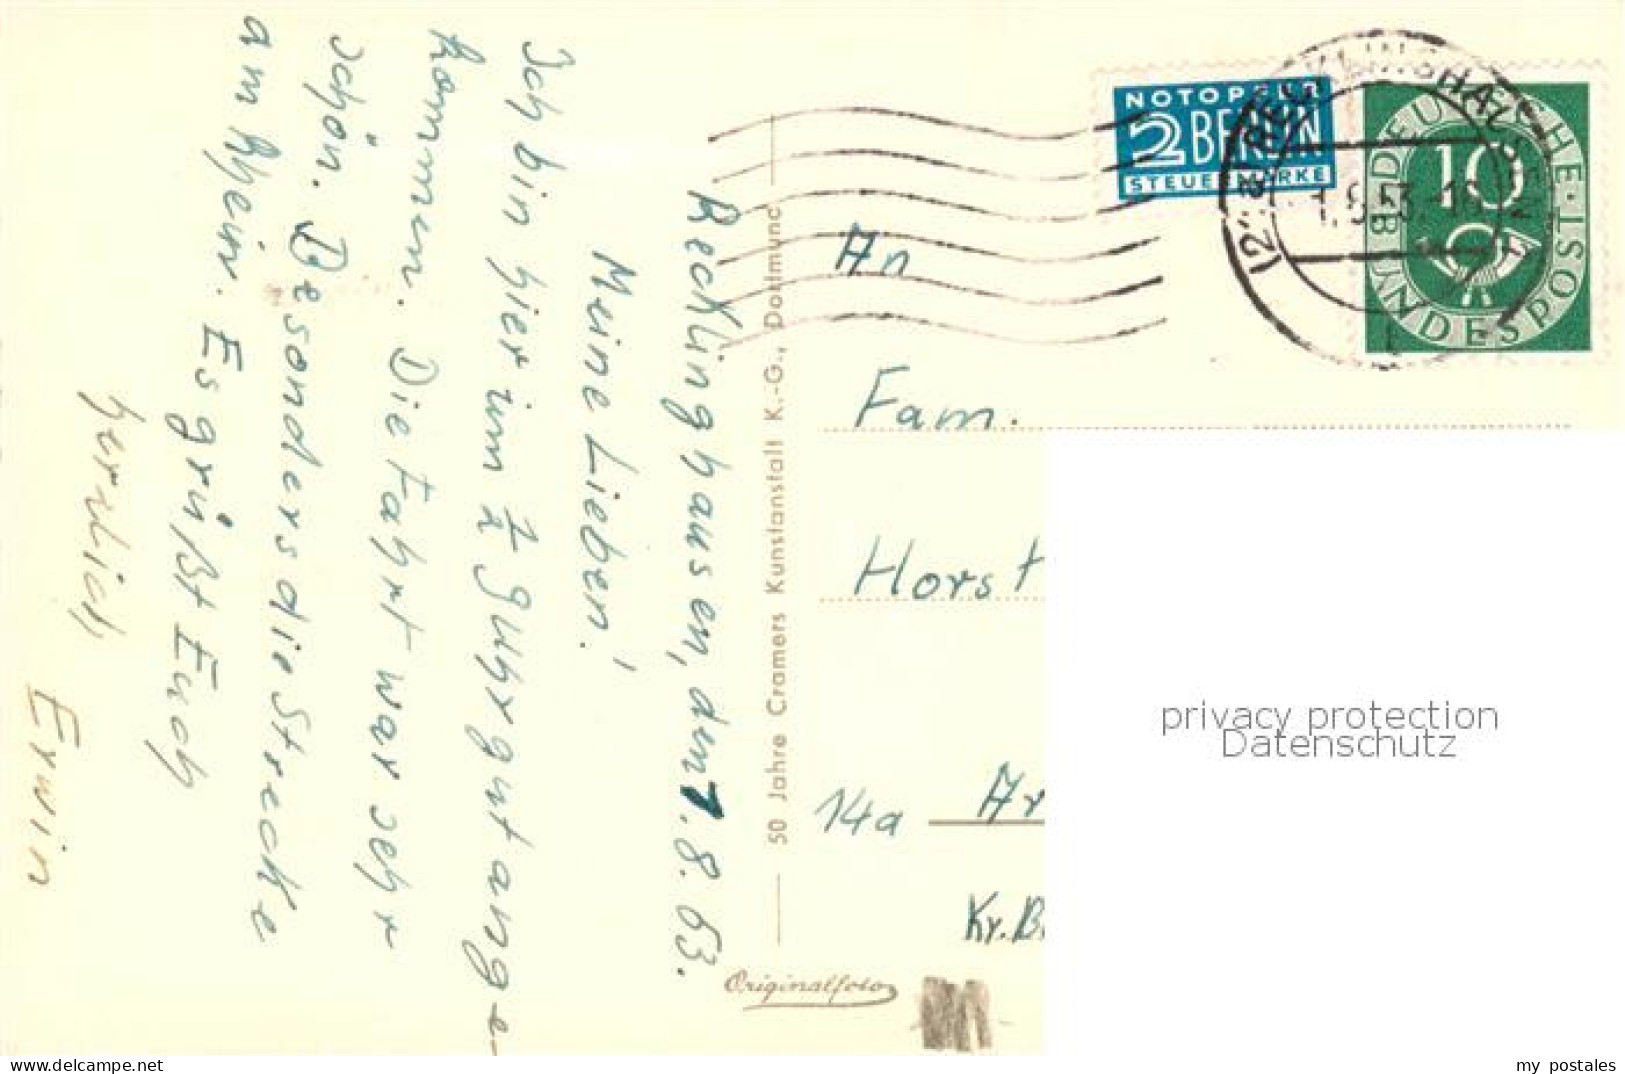 Recklinghausen, den 1.8.53.
Meine Lieben!
Ich bin hier um ½ 9 Uhr gut ange-
kommen. Die Fahrt war sehr
schön. Besonders die Strecke
am Rhein. Es grüßt Euch
herzlich
Erwin
50 Jahre Cramers Kunstanstalt K.-G., Dortmund
Originalfoto
NOTOPFER
2 BERLIN
STEUERMARKE
DEUTSCHE·BUNDESPOST
10
RECKLINGHAUSEN
An
Fam.
Horst
14a
Kr.B.
privacy protection
Datenschutz
my postales